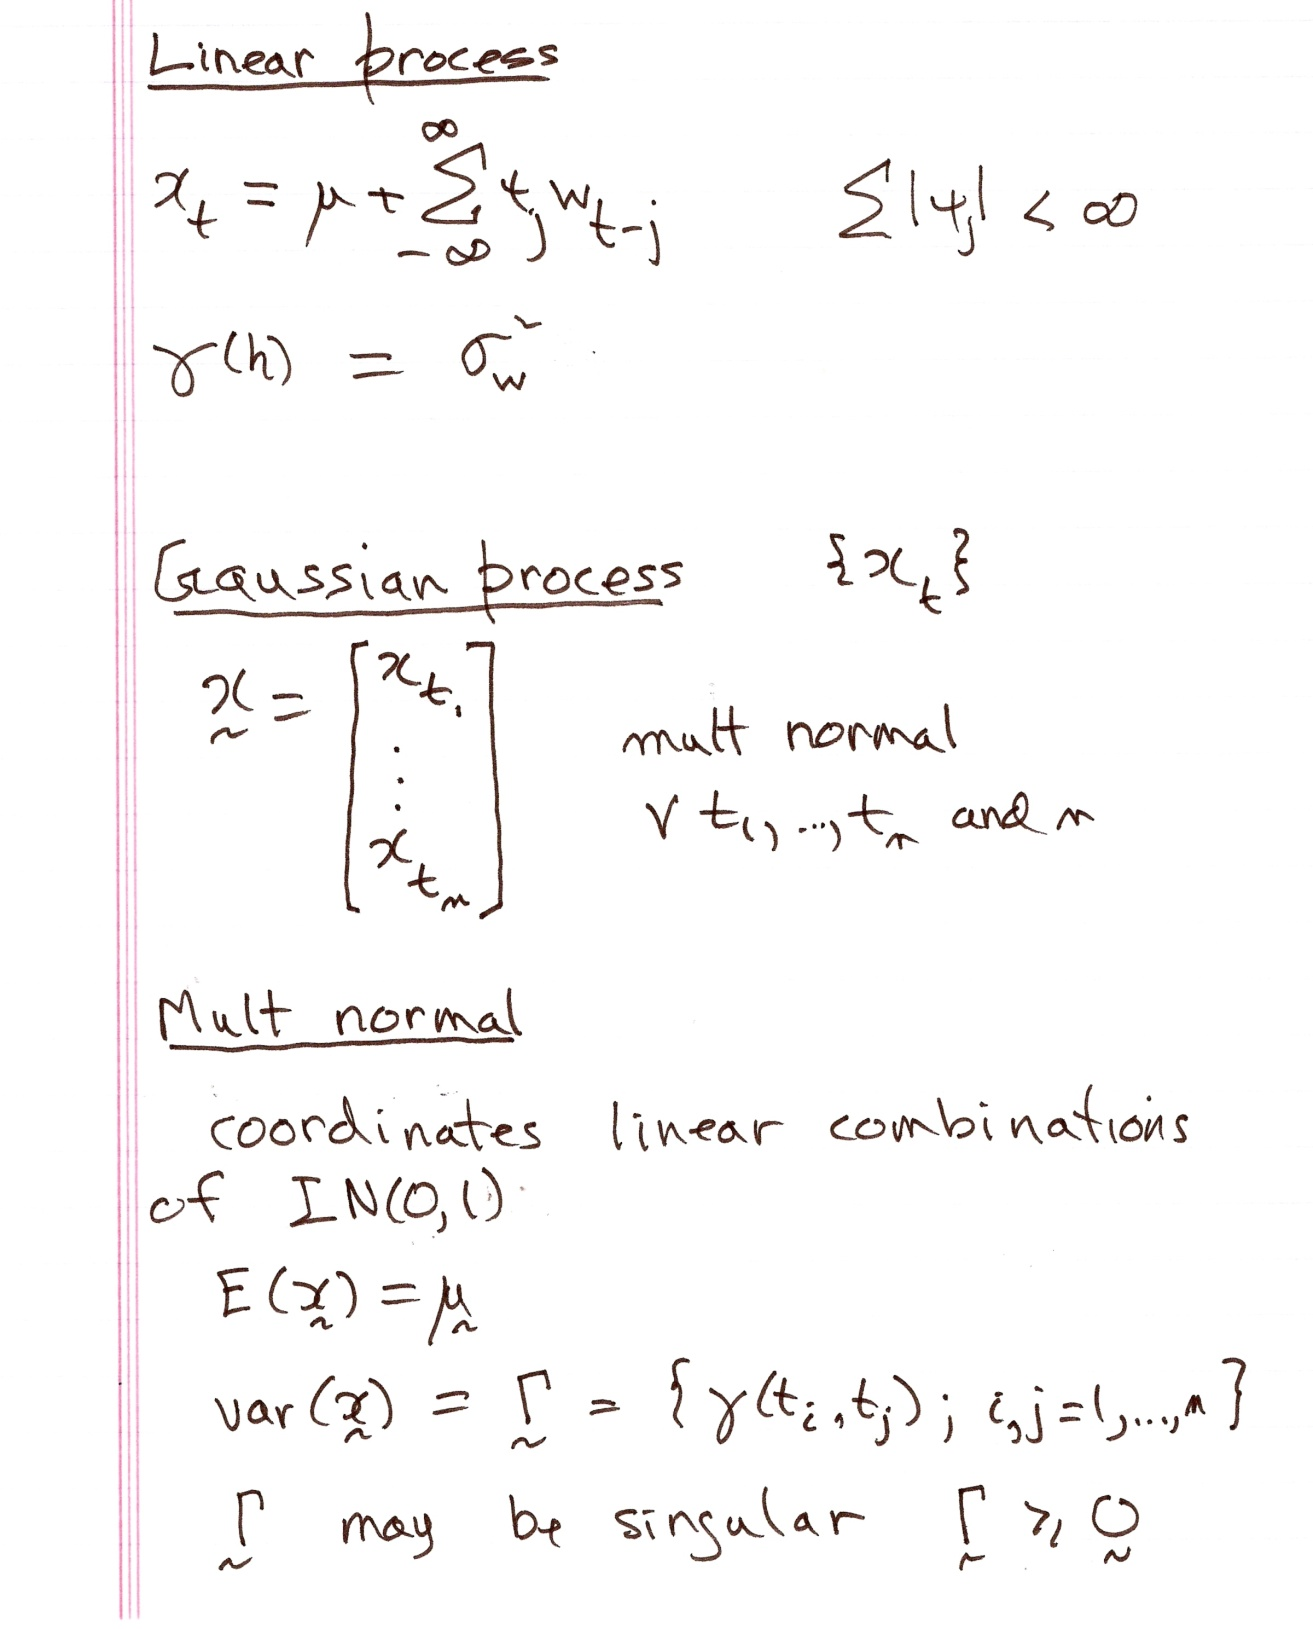 Linear process
x_t = μ + Σ_{-∞}^{∞} ψ_j w_{t-j}    Σ|ψ_j| < ∞
γ(h) = σ_w^2
Gaussian process    {x_t}
x̰ = [x_{t_1} ⋮ x_{t_n}]    mult normal
∀ t_1, ..., t_n and n
Mult normal
coordinates linear combinations
of IN(0,1)
E(x̰) = μ̰
var(x̰) = Γ̰ = {γ(t_i, t_j); i,j=1,...,n}
Γ̰ may be singular    Γ̰ ≥ 0̰